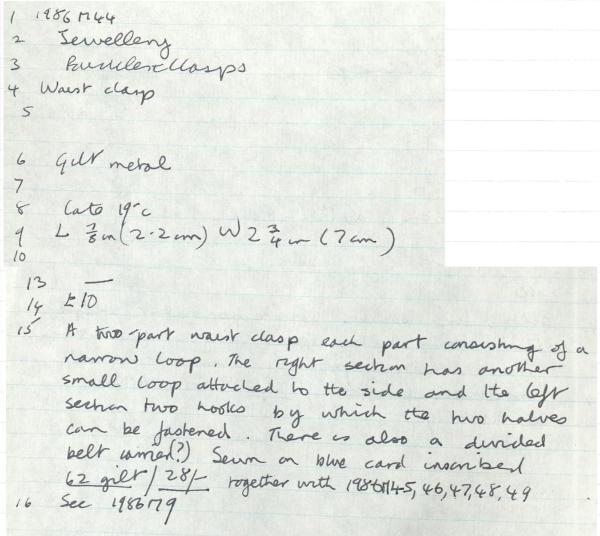 1 1986M44
2 Jewellery
3 Buckles & clasps
4 Waist clasp
5
6 Gilt metal
7
8 Late 19th c
9 L 7/8 in (2.2 cm) W 2 3/4 in (7 cm)
10
13 —
14 £10
15 A two-part waist clasp each part consisting of a
narrow loop. The right section has another
small loop attached to the side and the left
section two hooks by which the two halves
can be fastened. There is also a divided
belt carrier(?) Sewn on blue card inscribed
62 gilt / 28/- together with 1986M45, 46, 47, 48, 49
16 See 1986M9